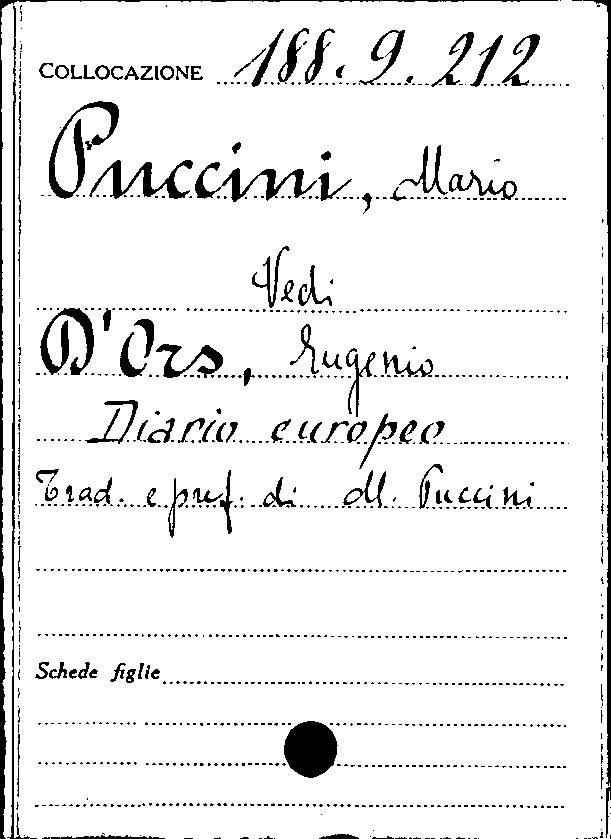 COLLOCAZIONE 188.9.212
Puccini, Mario
Vedi
D'Ors, Eugenio
Diario europeo
Trad. e pref. di M. Puccini
Schede figlie